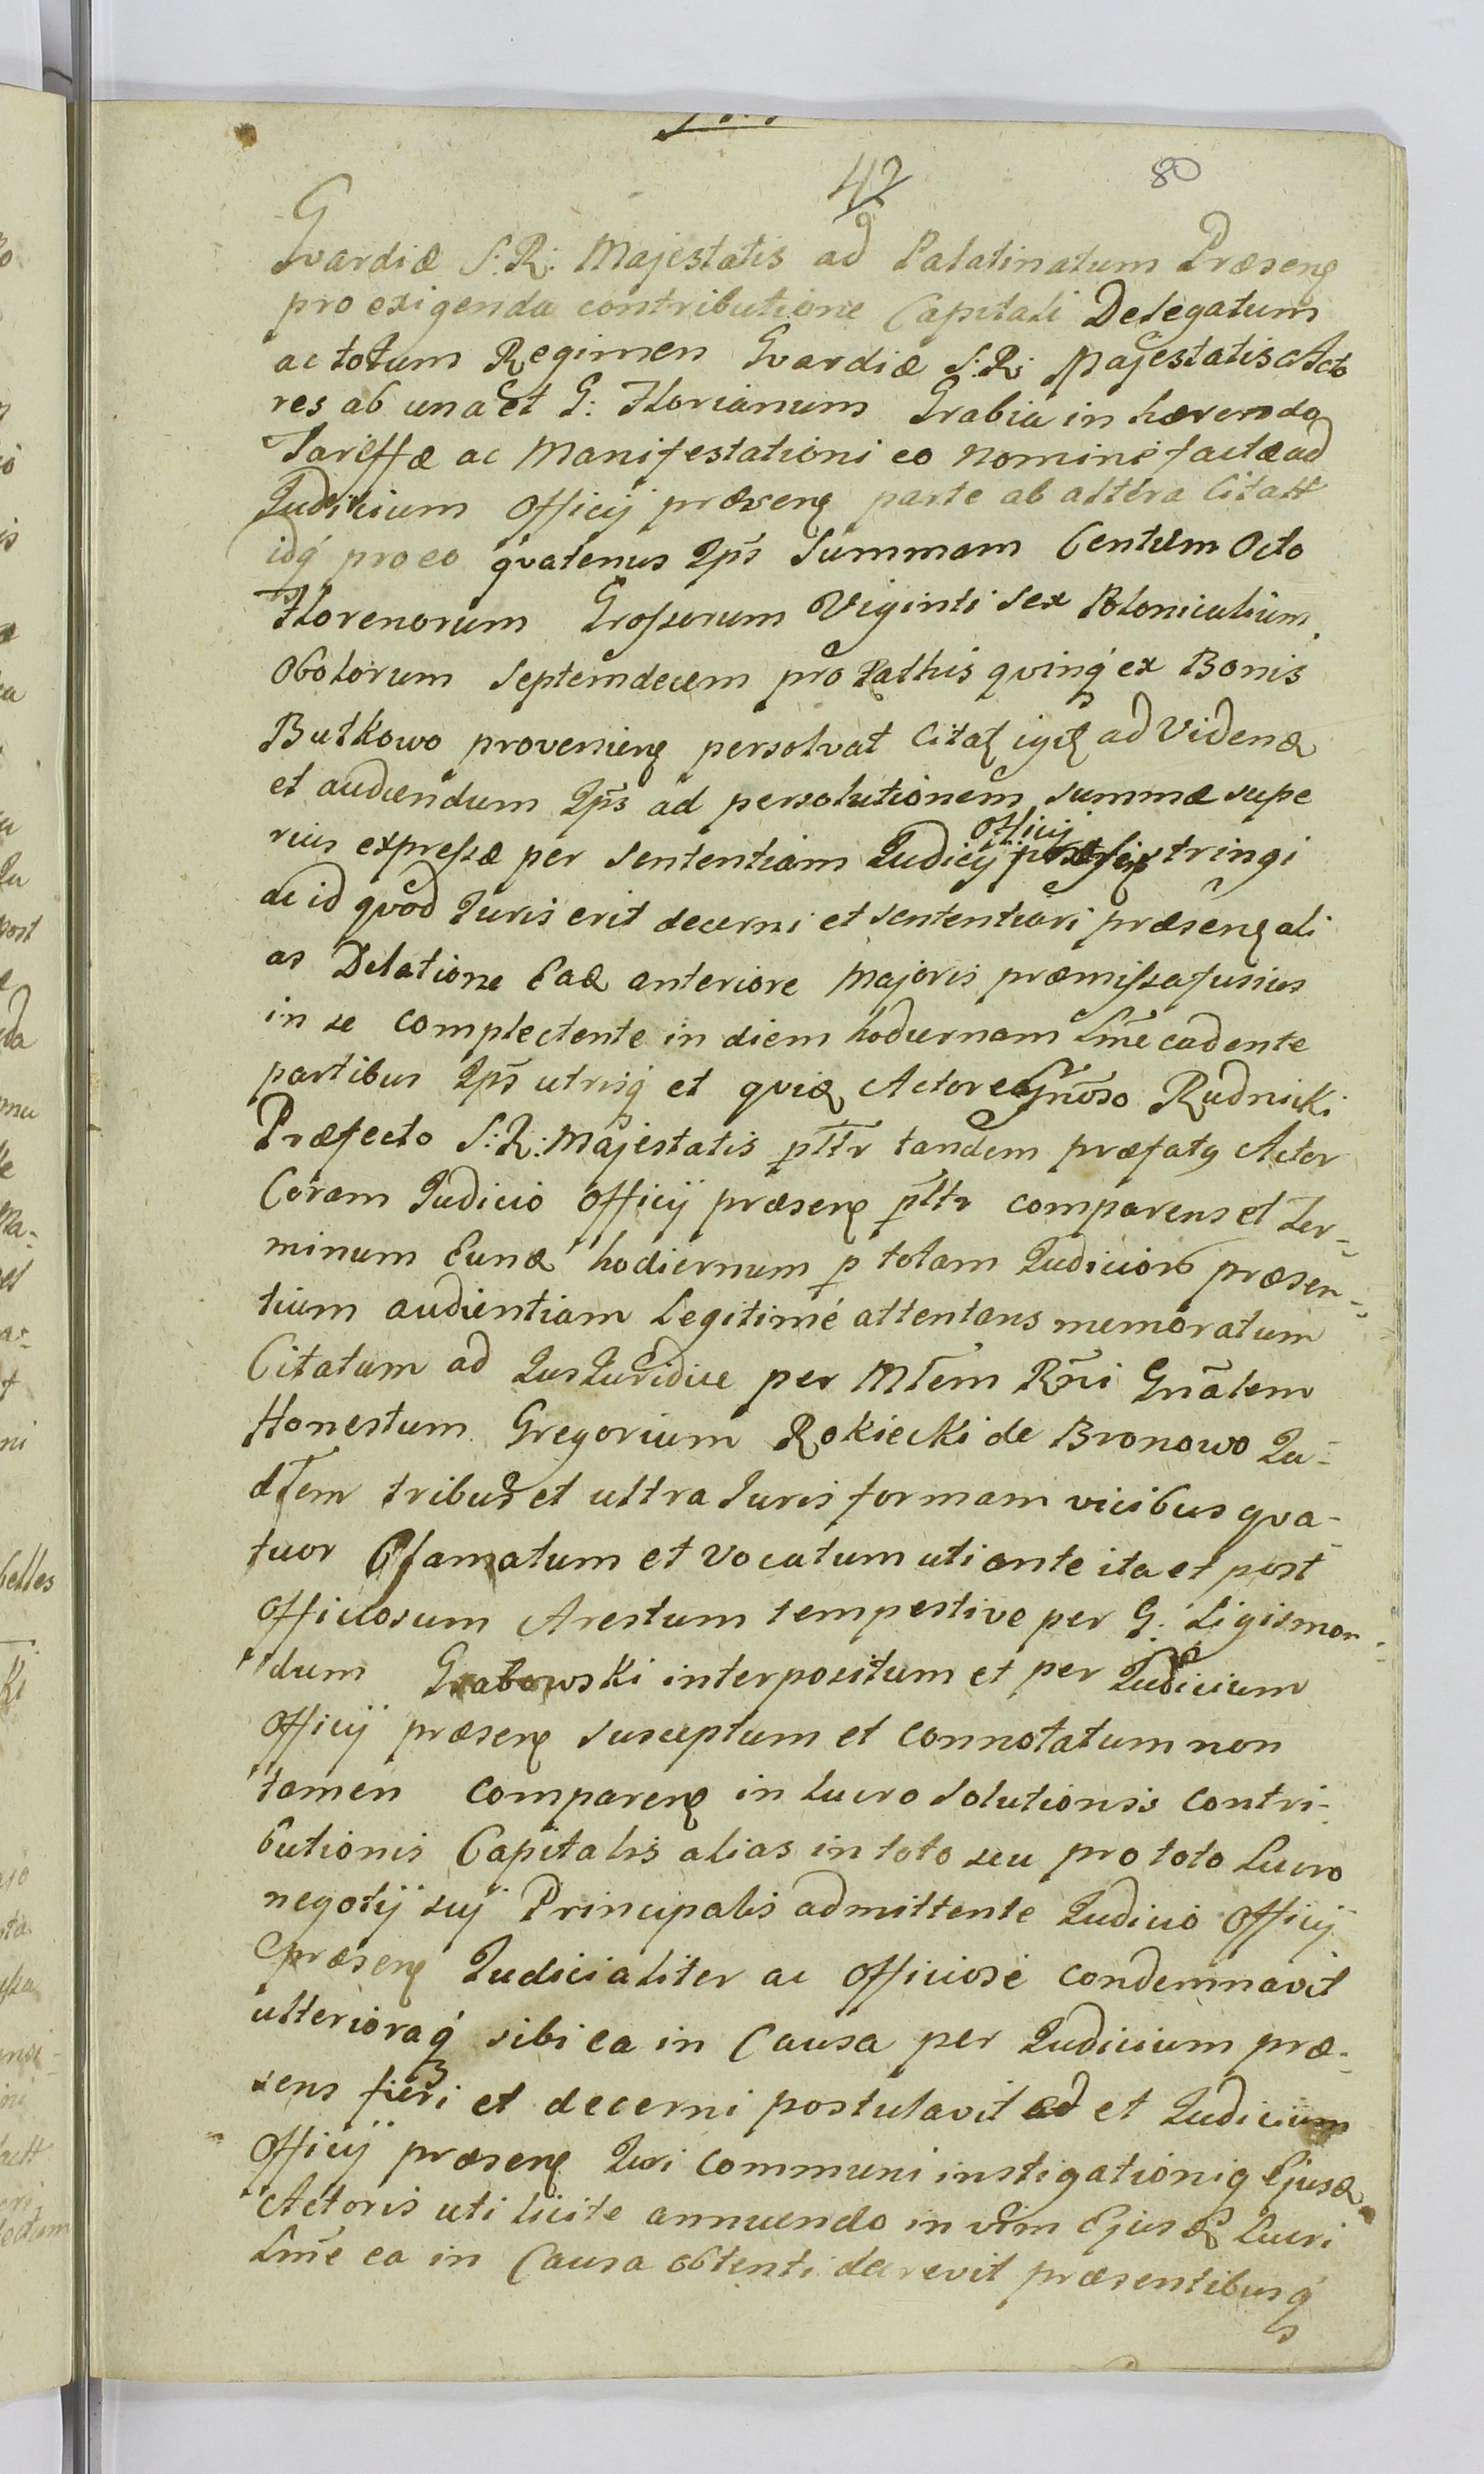 42
80
Gvardiæ S: R: Majestatis ad Palatinatum Præsenę
pro exigenda contributione Capitali Delegatum
ac totum Regimen Gvardiæ S: R: Majestatis Acto
res ab una et G: Florianum Grabia in hærendo
Tariffæ ac Manifestationi eo nomine factæ ad
Judicium Officij præsenę parte ab altera Citatt
idq́ pro eo qvatenus Ip̄s Summam Centum Octo
Florenorum Grossorum Viginti Sex Polonicalium
Obolorum Septemdecem pro Rathis qvinq́ ex Bonis
Butkowo provenienę persolvat Citaʈ igiʈ ad Videnꝺ
et audiendum Ip̄s ad persolutionem summæ supe
rius expressæ per Sententiam Judicij Officij præsenę stringi
ac id qvod Juris erit decerni et sententiari præsenę ali
as Delatione Eaꝺ anteriore Majoris præmissa fusius
in se complectente in diem hodiernam Lm̄e cadente
partibus Ip̄s utrisq́ et qviꝺ Actorea Gn̄oso Rudnicki
Præfecto S: R: Majestatis p̱ltr tandem præfatꝯ Actor
Coram Judicio Officij præsenę p̱ltr comparens et Ter-
minum Eunꝺ hodiernum p̱ totam Judicioꝝ præsen-
tium audientiam Legitimé attentans memoratum
Citatum ad Jus Juridice per MTem Rn̄i Gn̄alem
Honestum Gregorium Rokiecki de Bronowo Ju-
dTem tribus et ultra Juris formam vicibus qva-
tuor Clamatum et Vocatum uti ante ita et post
Officiosum Arestum tempestive per G: Sigismon-
dum Grabowski interpositum et per Judicium
Officij præsenę susceptum et connotatum non
tamen comparenę in Lucro Solutionis contri-
butionis Capitalis alias in toto seu pro toto Lucro
negotij sui Principalis admittente Judicio Officij
præsenę Judicialiter ac Officiosé condemnavit
ulterioraq́ sibi ea in Causa per Judicium præ-
sens fieri et decerni postulavit ad et Judicium
Officij præsenę Juri Communi instigationiq́ Ejusꝺ
Actoris uti licite annuendo in vim Ejusꝺ Lucri
Lm̄e ea in Causa obtenti decrevit præsentibusq́